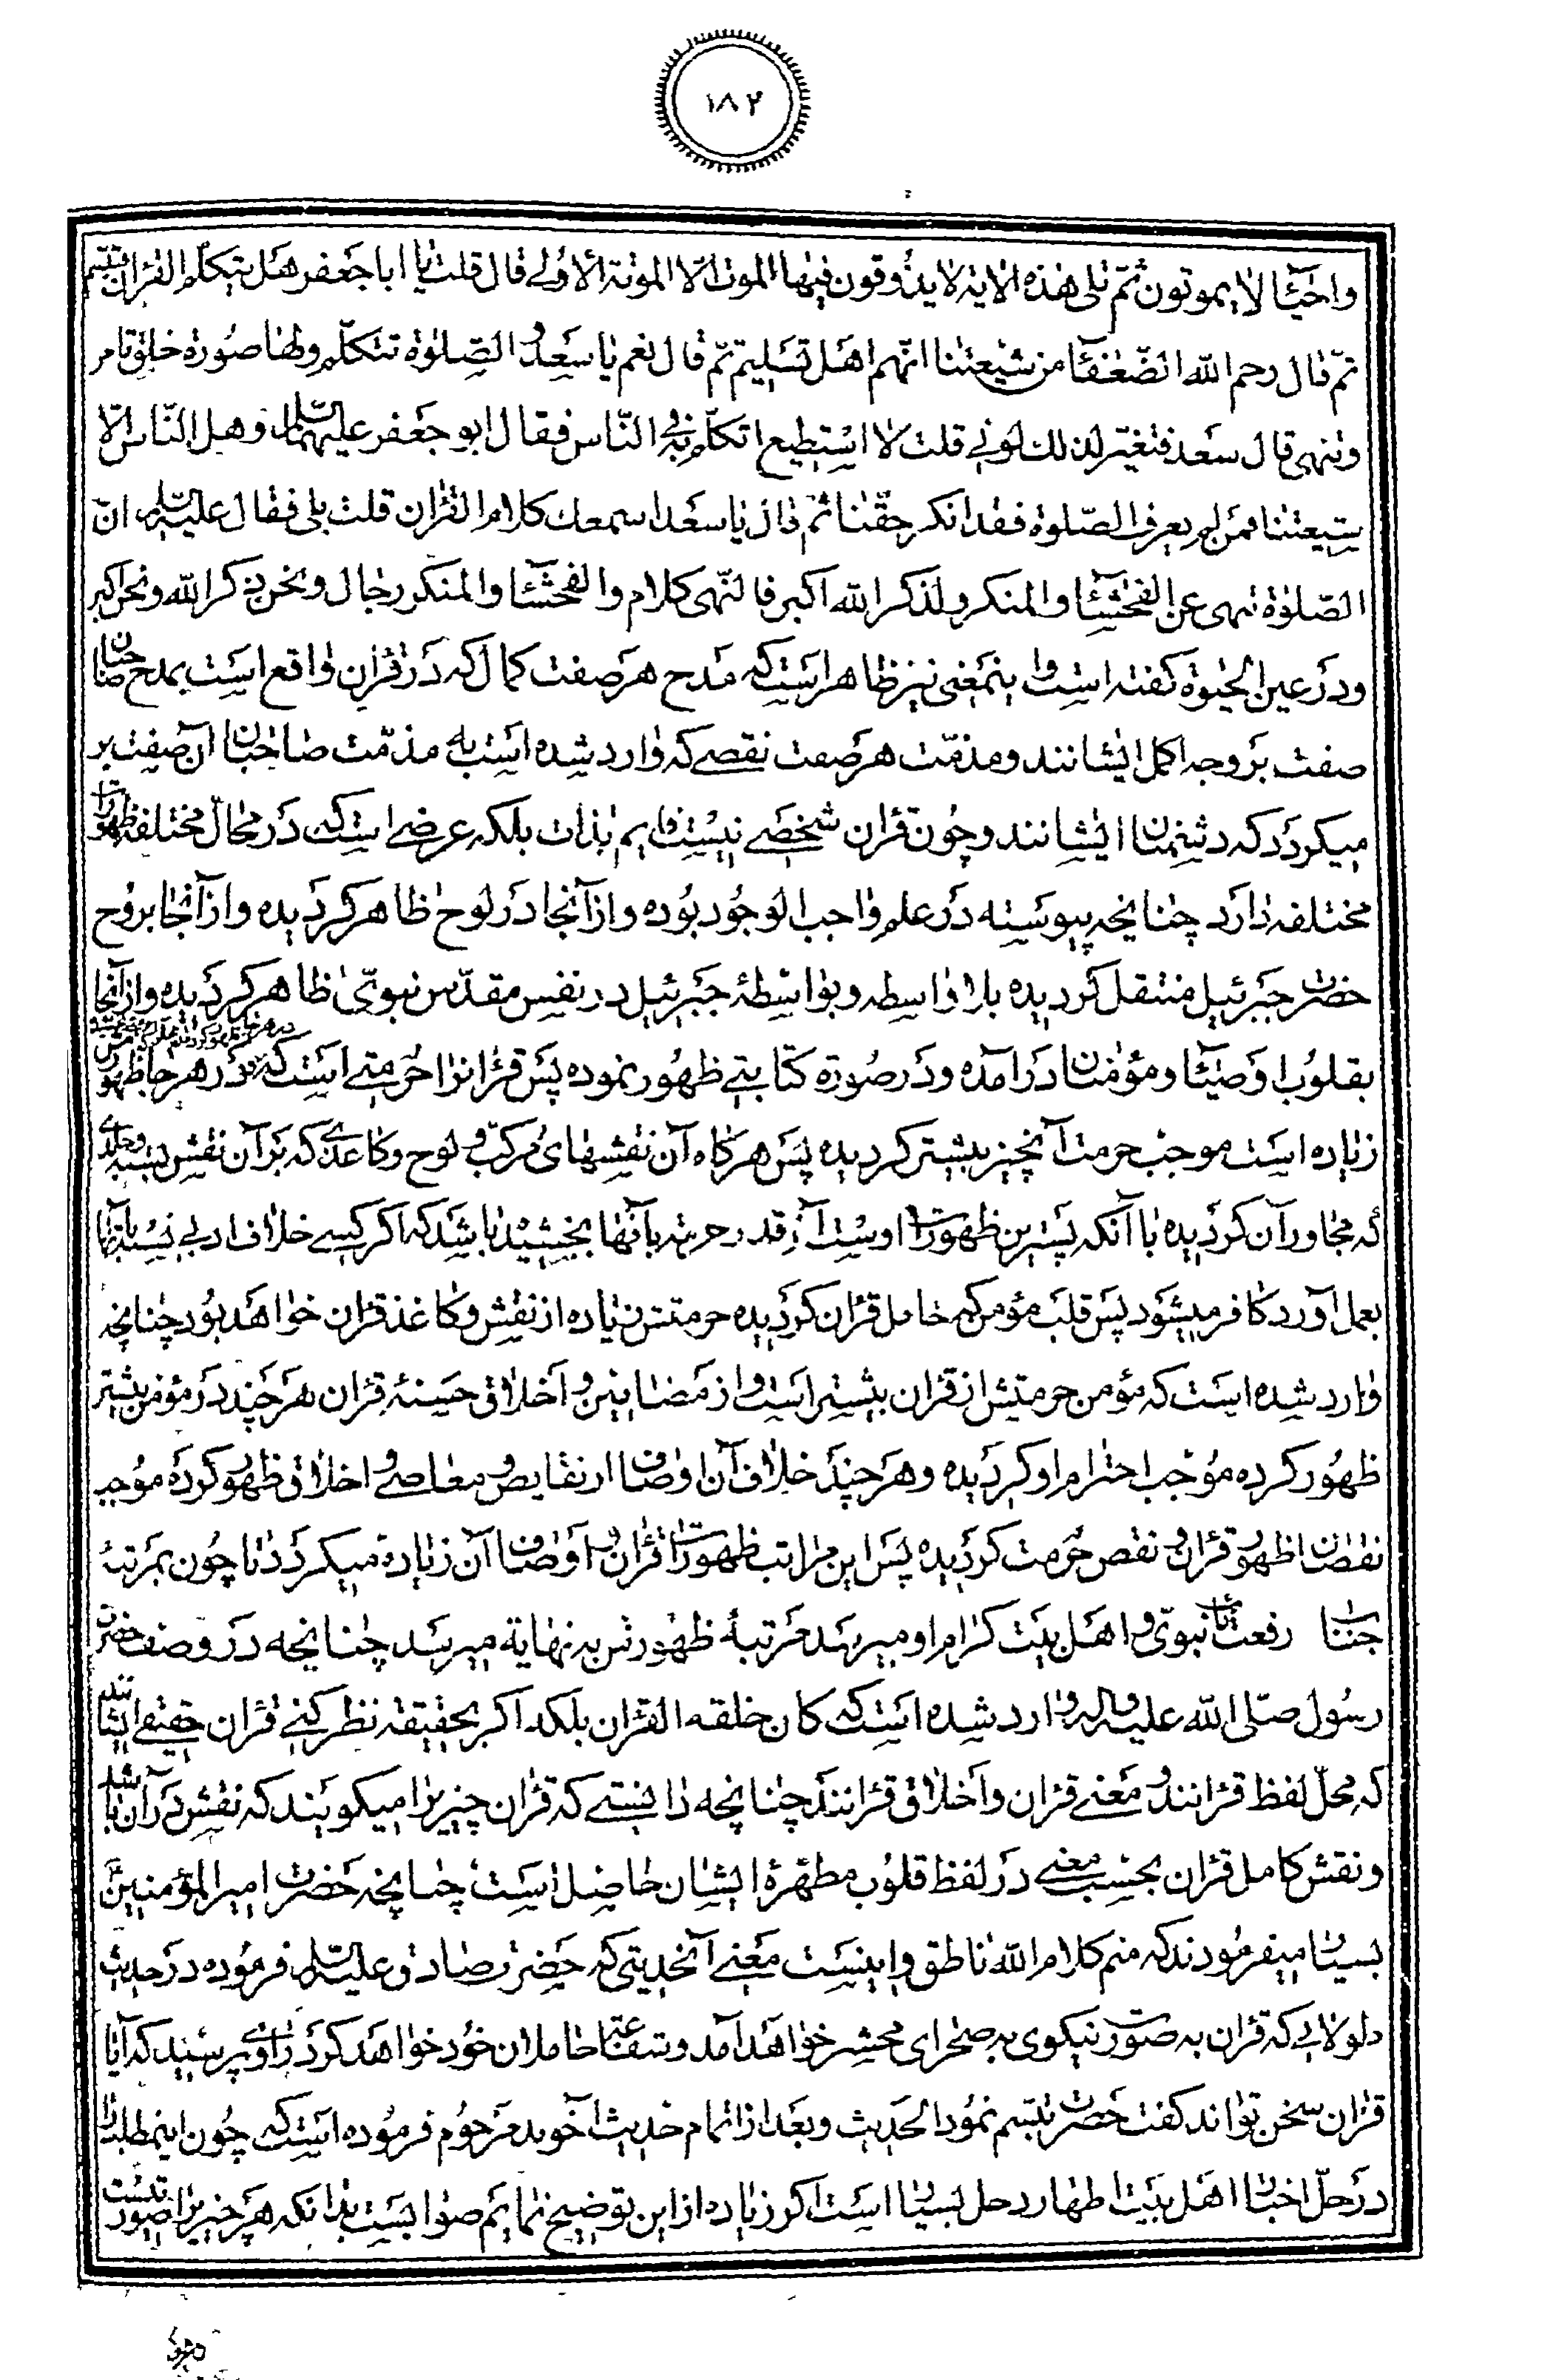 ١٨٢
واحیآءا لا یموتون ثمّ تلی هذه الایة لا یذوقون فیها الموت الّا الموتة الاولی قال قلت یا ابا جعفر هل یتکلّم القران فتبسّم
ثمّ قال رحم الله الضّعفآء من شیعتنا انّهم اهل تسلیم ثمّ قال نعم یا سعد و الصّلوة تتکلّم ولها صورة خلق تامر
وتنهی قال سعد فتغیّر لذلک لونی قلت لا استطیع اتکلّم به فی النّاس فقال ابو جعفر علیهما السّلام وهل النّاس الّا
شیعتنا فمن لم یعرف الصّلوة فقد انکر حقّنا ثمّ قال یا سعد اسمعک کلام القران قلت بلی فقال علیه السّلم انّ
الصّلوة تنهی عن الفحشآء والمنکر ولذکر الله اکبر فالنّهی کلام والفحشآء والمنکر رجال ونحن ذکر الله ونحن اکبر
ودر عین الحیوة کفته است و اینمعنی نیز ظاهر است که مدح هر صفت کمال که در قران واقع است بمدح صاحبان
صفت بر وجه اکمل ایشانند ومذمّت هر صفت نقصی که وارد شده است به مذمّت صاحبان آن صفت بر
میکردد که دشمنان ایشانند وچون قران شخصی نیست قایم بذات بلکه عرضی است که در محالّ مختلفه ظهورات
مختلفه دارد چنانچه پیوسته در علم واجب الوجود بوده واز آنجا در لوح ظاهر کردیده واز آنجا بروح
حضرت جبرئیل منتقل کردیده بلا واسطه وبواسطهٔ جبرئیل در نفس مقدّس نبوی ظاهر کردیده واز آنجا
بقلوب اوصیآء ومؤمنان درآمده ودر صورة کتابتی ظهور نموده پس قرانرا حرمتی است که در هر جا ظهورش
زیاده است موجب حرمت آنچیز بیشتر کردیده پس هرکاه آن نقشهای مرکّب و لوح وکاغذی که بر آن نقش بسته وجلدی
که مجاور آن کردیده با آنکه پسترین ظهورات اوست آنقدر حرمت بآنها بخشیده باشد که اکر کسی خلاف ادبی نسبت بآنها
بعمل آورد کافر میشود پس قلب مؤمن که حامل قران کردیده حرمتش زیاده از نقش وکاغذ قران خواهد بود چنانچه
وارد شده است که مؤمن حرمتش از قران بیشتر است و از مضامین و اخلاق حسنهٔ قران هر چند در مؤمن بیشتر
ظهور کرده موجب احترام او کردیده وهر چند خلاف آن اوصاف از نقایص و معاصی و اخلاق ظهور کرده موجب
نقصان ظهور قران و نقص حرمت کردیده پس این مراتب ظهورات قران و اوصاف آن زیاده میکردد تا چون بمرتبهٔ
جناب رفعت نبوی و اهل بیت کرام او میرسد مرتبهٔ ظهورش به نهایة میرسد چنانچه در وصف حضرت
رسول صلّی الله علیه واله وارد شده است که کان خلقه القران بلکه اکر بحقیقة نظر کنی قران حقیقی ایشانند
که محلّ لفظ قرانند و معنی قران واخلاق قرانند چنانچه دانستی که قران چیزیرا میکویند که نقش در آن باشد
ونقش کامل قران بحسب معنی در لفظ قلوب مطهّرهٔ ایشان حاصل است چنانچه حضرت امیر المؤمنین
بسیار میفرمودند که منم کلام الله ناطق واینست معنی آنحدیثی که حضرت صادق علیه السّلم فرموده در حدیث
که قران به صورت نیکوی به صحرای محشر خواهد آمد وشفاعت حاملان خود خواهد کرد راوی پرسید که آیا
قران سخن تواند کفت حضرت تبسّم نمود الحدیث وبعد از اتمام حدیث آخوند مرحوم فرموده است که چون اینمطلب را
در حلّ اخبار اهل بیت اطهار دخل بسیار است اکر زیاده از این توضیح نمایم صواب است بدانکه هر چیزیرا صورتیست